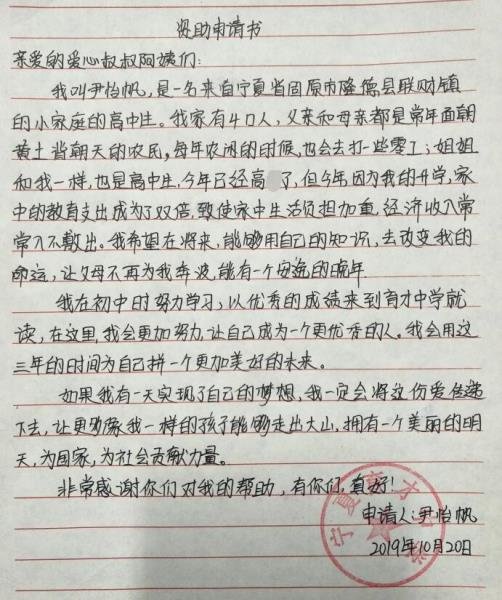 资助申请书
亲爱的爱心叔叔阿姨们:
我叫尹怡帆,是一名来自宁夏省固原市隆德县联财镇
的小家庭的高中生。我家有4口人,父亲和母亲都是常年面朝
黄土背朝天的农民,每年农闲的时候,也会去打一些零工;姐姐
和我一样,也是高中生,今年已经高了,但今年因为我的升学,家
中的教育支出成为了双倍,致使家中生活负担加重,经济收入常
常入不敷出。我希望在将来,能够用自己的知识,去改变我的
命运,让父母不再为我奔波,能有一个安逸的晚年
我在初中时努力学习,以优秀的成绩来到育才中学就
读,在这里,我会更加努力,让自己成为一个更优秀的人。我会用这
三年的时间为自己拼一个更加美好的未来。
如果我有一天实现了自己的梦想,我一定会将这份爱传递
下去,让更多像我一样的孩子能够走出大山,拥有一个美丽的明
天,为国家,为社会贡献力量。
非常感谢你们对我的帮助,有你们,真好!
申请人:尹怡帆
2019年10月20日
宁夏育才中学